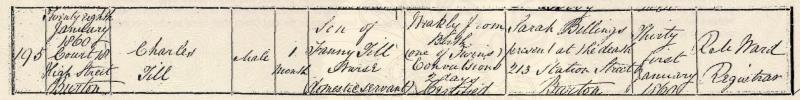 195
Twenty eighth
January
1860
Court 18
High Street
Burton
Charles
Till
Male
1
Month
Son of
Fanny Till
Nurse
(domestic servant)
Weakly from
Birth
(one of Twins)
Convulsions
2 days
Certified
Sarah Billings
present at the death
213 Station Street
Burton
Thirty
first
January
1860
Ward
Registrar